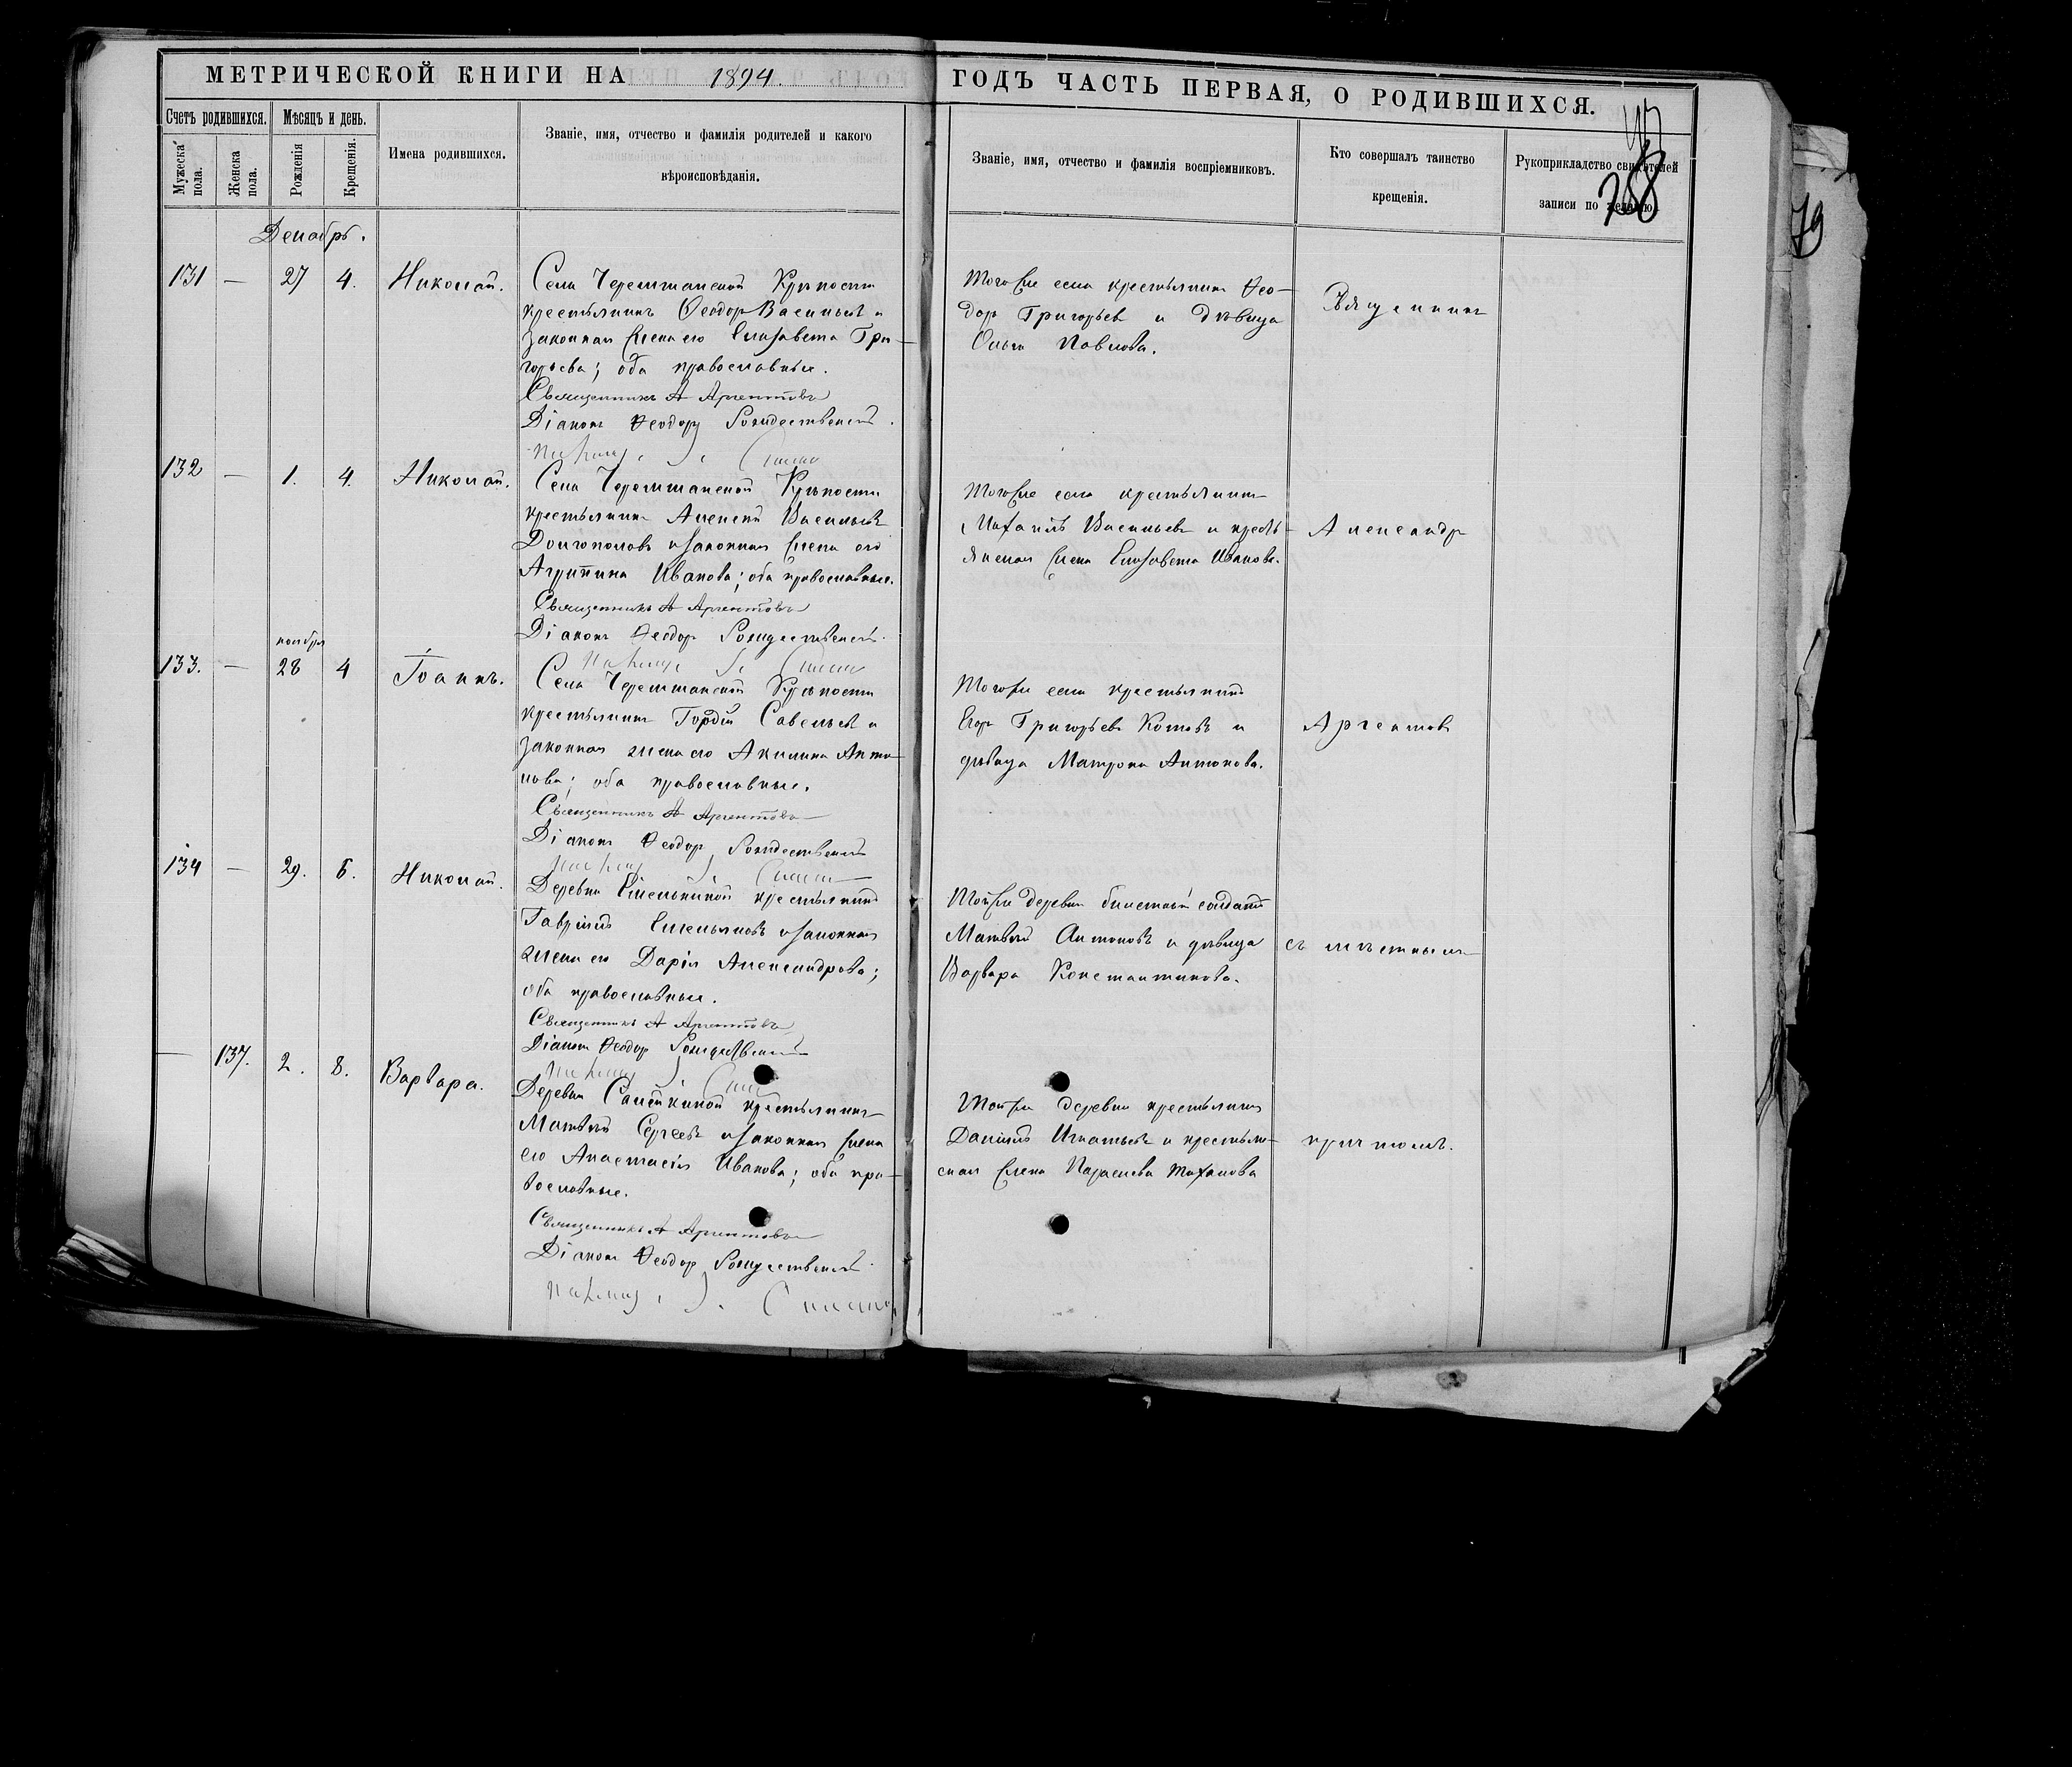 МЕТРИЧЕСКОЙ КНИГИ НА 1894. ГОДЪ ЧАСТЬ ПЕРВАЯ, О РОДИВШИХСЯ.
288
79
Счетъ родившихся.
Мужеска пола.
Женска пола.
Мѣсяцъ и день.
Рожденія
Крещенія.
Имена родившихся.
Званіе, имя, отчество и фамилія родителей и какого
вѣроисповѣданія.
Званіе, имя, отчество и фамилія воспріемниковъ.
Кто совершалъ таинство
крещенія.
Рукоприкладство свидѣтелей
записи по желанію.
Декабрь.
131 — 27 4. Николай.
Села Черемшанской Крѣпости
крестьянинъ Ѳеодоръ Васильевъ и
законная жена его Елизавета Гри-
горьева; оба православные.
Священникъ А Аргентовъ
Діаконъ Ѳеодоръ Рождественскій.
Того же села крестьянинъ Ѳео-
доръ Григорьевъ и дѣвица
Ольга Павлова.
Священникъ
132 — 1. 4. Николай.
Села Черемшанской Крѣпости
крестьянинъ Алексей Васильевъ
Долгополовъ и законная жена его
Агриппина Иванова; оба православные.
Священникъ А Аргентовъ
Діаконъ Ѳеодоръ Рождественскій.
Того же села крестьянинъ
Михаилъ Васильевъ и кресть-
янская жена Елизавета Иванова.
Александръ
ноября
133. — 28 4 Іоаннъ.
Села Черемшанской Крѣпости
крестьянинъ Гордій Савельевъ и
законная жена его Акилина Анто-
нова; оба православные.
Священникъ А Аргентовъ
Діаконъ Ѳеодоръ Рождественскій
Того же села крестьянинъ
Егоръ Григорьевъ Котовъ и
дѣвица Матрона Антонова.
Аргентовъ
134 — 29. 6. Николай.
Деревни Емелькиной крестьянинъ
Гавріилъ Емельяновъ и законная
жена его Дарія Александрова;
оба православные.
Священникъ А Аргентовъ
Діаконъ Ѳеодоръ Рождественскій
Той же деревни билетный солдатъ
Матвѣй Антоновъ и дѣвица
Варвара Константинова.
съ мѣстнымъ
— 137. 2. 8. Варвара.
Деревни крестьянинъ
Матвѣй Сергеевъ и законная жена
его Анастасія Иванова; оба пра-
вославные.
Священникъ А Аргентовъ
Діаконъ Ѳеодоръ Рождественскій.
Той же деревни крестьянинъ
Даніилъ Игнатьевъ и крестьян-
ская жена
причтомъ.